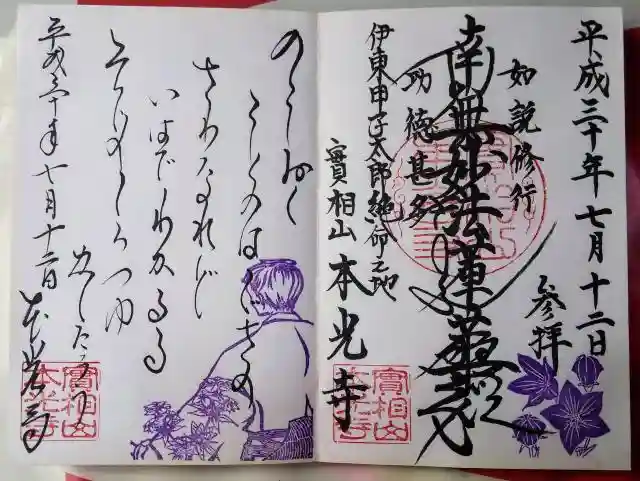 平成三十年七月十二日
参拝
如説修行
南無妙法蓮華経
功徳甚多
伊東甲子太郎絶命之地
實相山 本光寺
のこしおく
ことのはくさの
さわなれど
いはでわかるる
平成三十年七月十二日
本光寺
實相山
本光寺